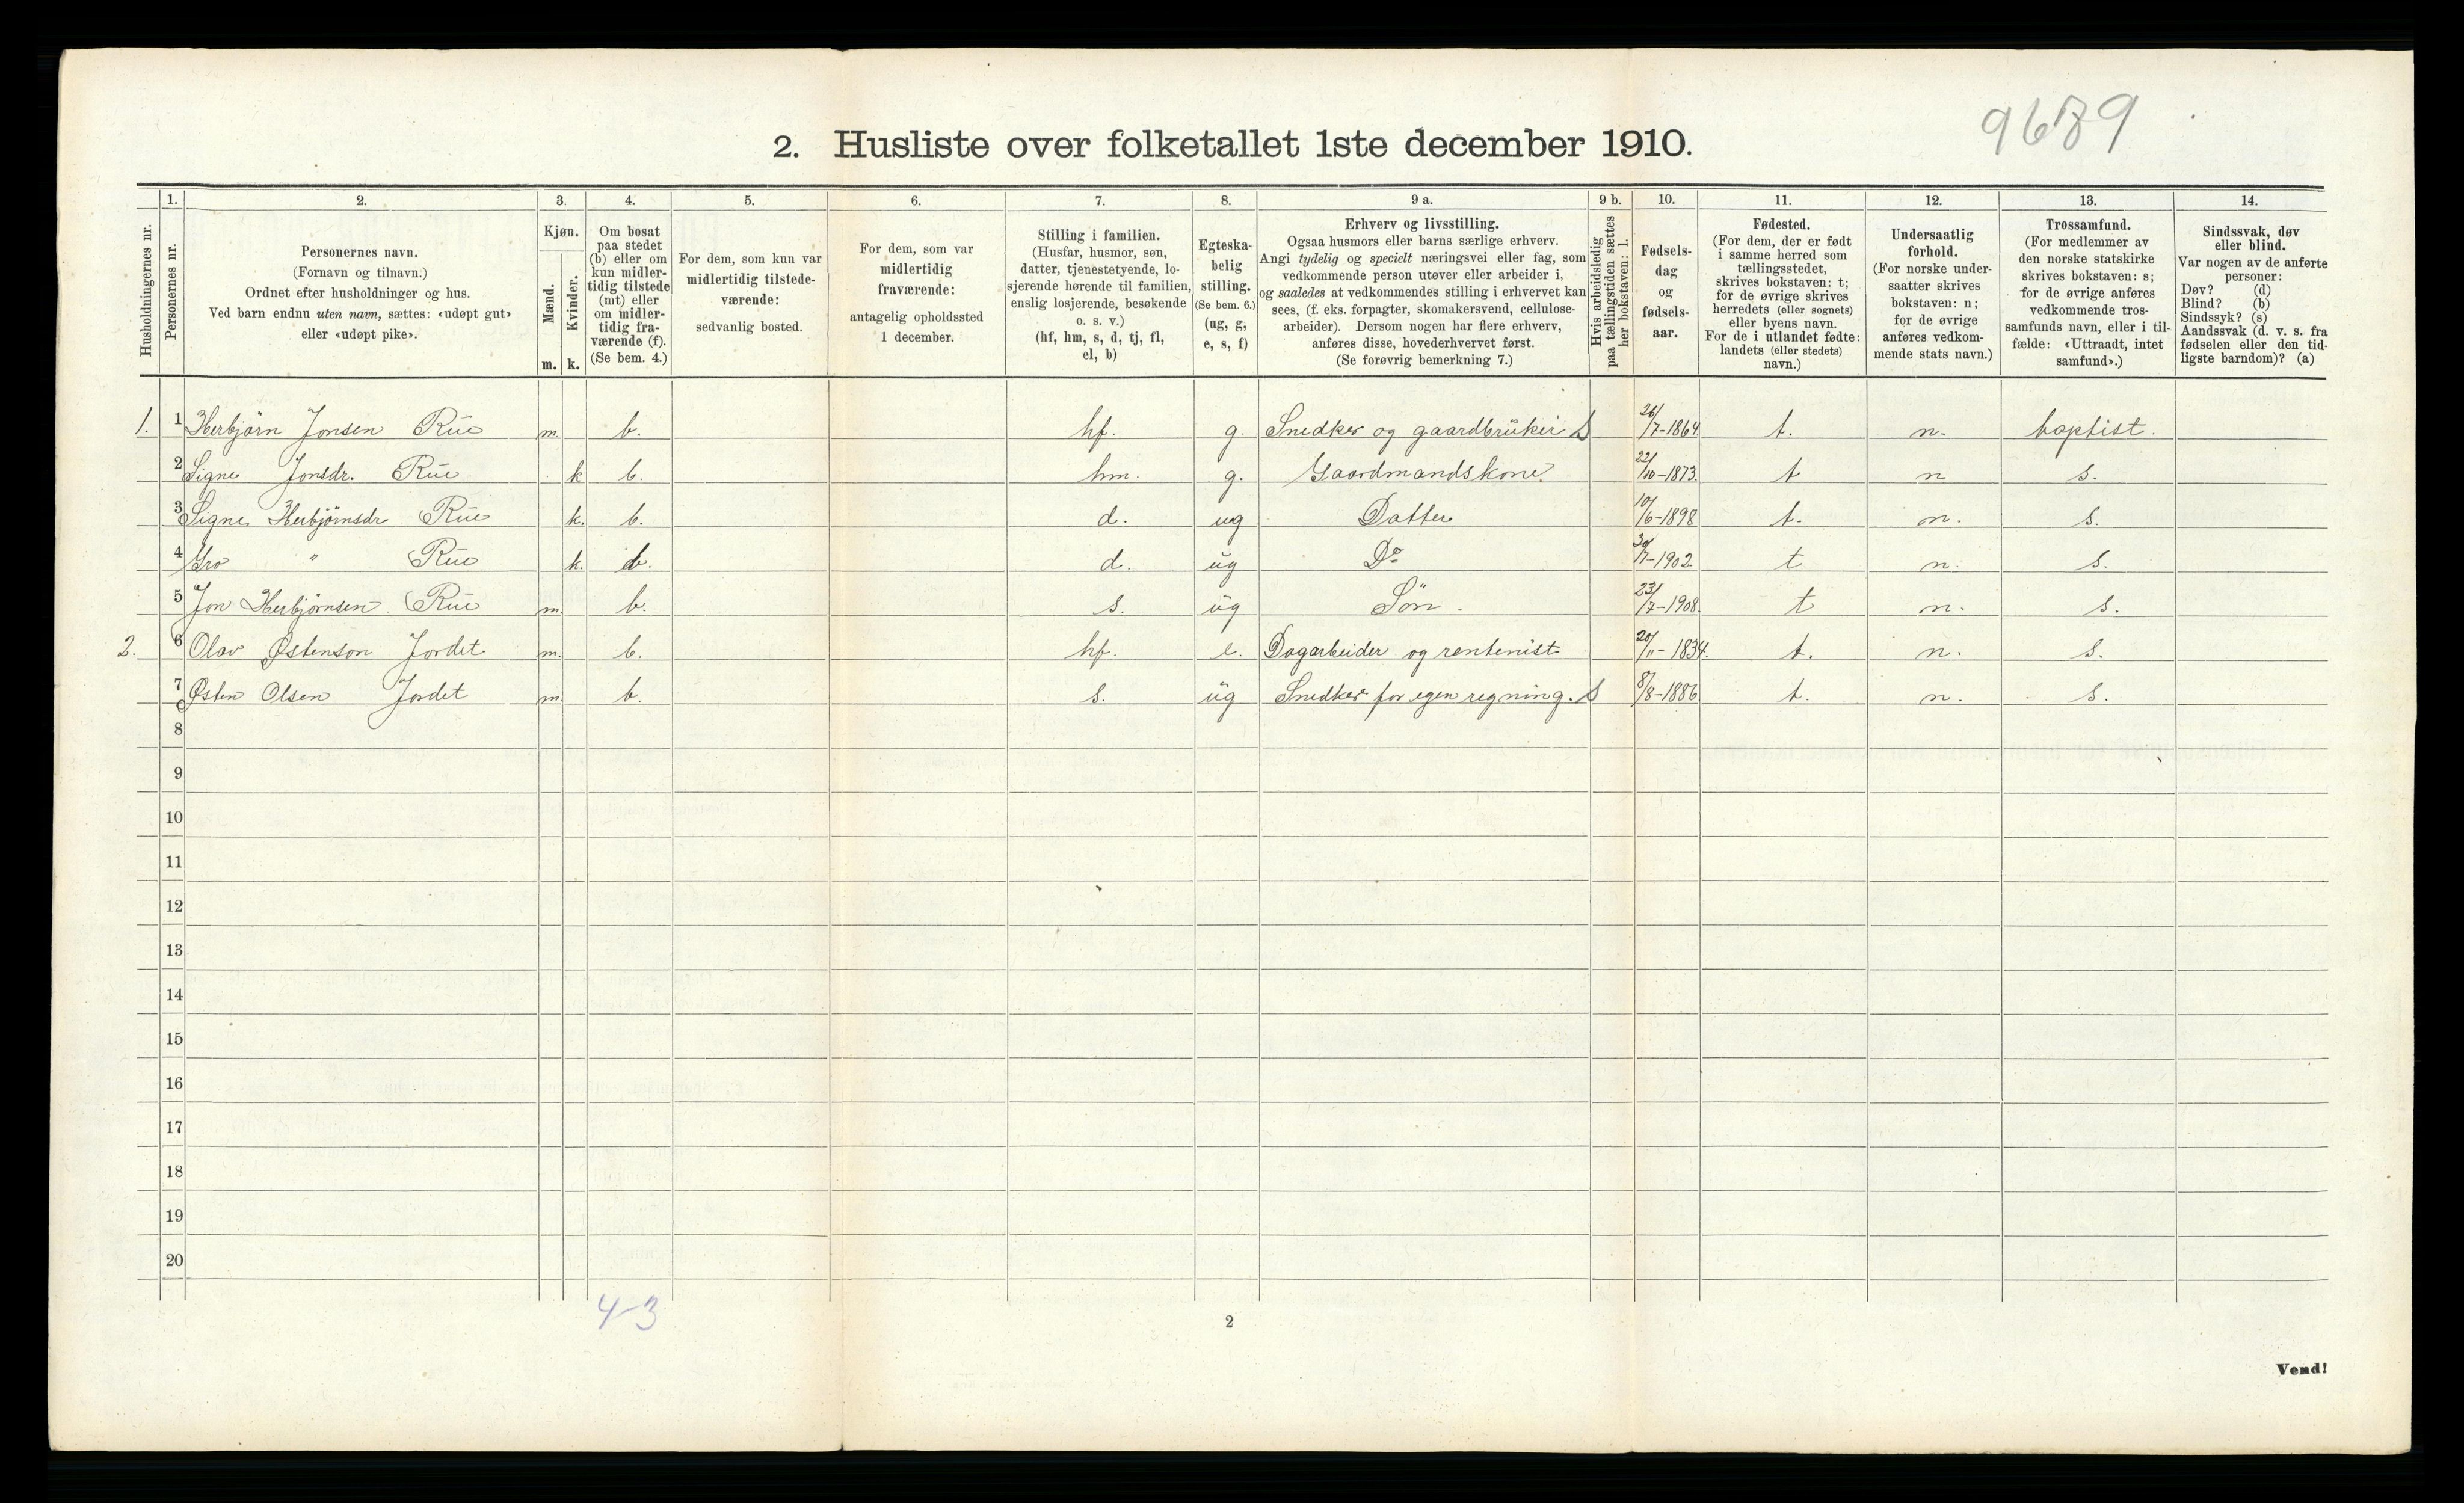 9689
2. Husliste over folketallet 1ste december 1910.
Husholdningernes nr.
1. Personernes nr.
2. Personernes navn.
(Fornavn og tilnavn.)
Ordnet efter husholdninger og hus.
Ved barn endnu uten navn, sættes: «udøpt gut»
eller «udøpt pike».
3. Kjøn.
Mænd. m.
Kvinder. k.
4. Om bosat
paa stedet
(b) eller om
kun midler-
tidig tilstede
(mt) eller
om midler-
tidig fra-
værende (f).
(Se bem. 4.)
5. For dem, som kun var
midlertidig tilstede-
værende:
sedvanlig bosted.
6. For dem, som var
midlertidig
fraværende:
antagelig opholdssted
1 december.
7. Stilling i familien.
(Husfar, husmor, søn,
datter, tjenestetyende, lo-
sjerende hørende til familien,
enslig losjerende, besøkende
o. s. v.)
(hf, hm, s, d, tj, fl,
el, b)
8. Egteska-
belig
stilling.
(Se bem. 6.)
(ug, g,
e, s, f)
9 a. Erhverv og livsstilling.
Ogsaa husmors eller barns særlige erhverv.
Angi tydelig og specielt næringsvei eller fag, som
vedkommende person utøver eller arbeider i,
og saaledes at vedkommendes stilling i erhvervet kan
sees, (f. eks. forpagter, skomakersvend, cellulose-
arbeider). Dersom nogen har flere erhverv,
anføres disse, hovederhvervet først.
(Se forøvrig bemerkning 7.)
9 b. Hvis arbeidsledig
paa tællingstiden sættes
her bokstaven: l.
10. Fødsels-
dag
og
fødsels-
aar.
11. Fødested.
(For dem, der er født
i samme herred som
tællingsstedet,
skrives bokstaven: t;
for de øvrige skrives
herredets (eller sognets)
eller byens navn.
For de i utlandet fødte:
landets (eller stedets)
navn.)
12. Undersaatlig
forhold.
(For norske under-
saatter skrives
bokstaven: n;
for de øvrige
anføres vedkom-
mende stats navn.)
13. Trossamfund.
(For medlemmer av
den norske statskirke
skrives bokstaven: s;
for de øvrige anføres
vedkommende tros-
samfunds navn, eller i til-
fælde: «Uttraadt, intet
samfund».)
14. Sindssvak, døv
eller blind.
Var nogen av de anførte
personer:
Døv? (d)
Blind? (b)
Sindssyk? (s)
Aandssvak (d. v. s. fra
fødselen eller den tid-
ligste barndom)? (a)
1. 1 Herbjørn Jonsen Rue m. b. hf. g. Snedker og gaardbruker S 26/7-1864 t. n. baptist.
2 Signe Jonsdr. Rue k b. hm. g. Gaardmandskone. 22/10-1873. t n s.
3 Signe Herbjørnsdr Rue k. b. d. ug Datter 10/6-1898 t. n. s.
4 Gro " Rue k. b. d. ug Do 30/7-1902 t n. s.
5 Jon Herbjørnsen Rue m. b. s. ug Søn. 23/7-1908. t n. s.
2. 6 Olav Østenson Jordet m. b. hf. e. Dagarbeider og rentenist. 20/11-1834. t. n. s.
7 Østen Olsen Jordet m. b. s. ug Snedker for egen regning. S 8/8-1886 t. n. s.
8
9
10
11
12
13
14
15
16
17
18
19
20
4-3
2
Vend!